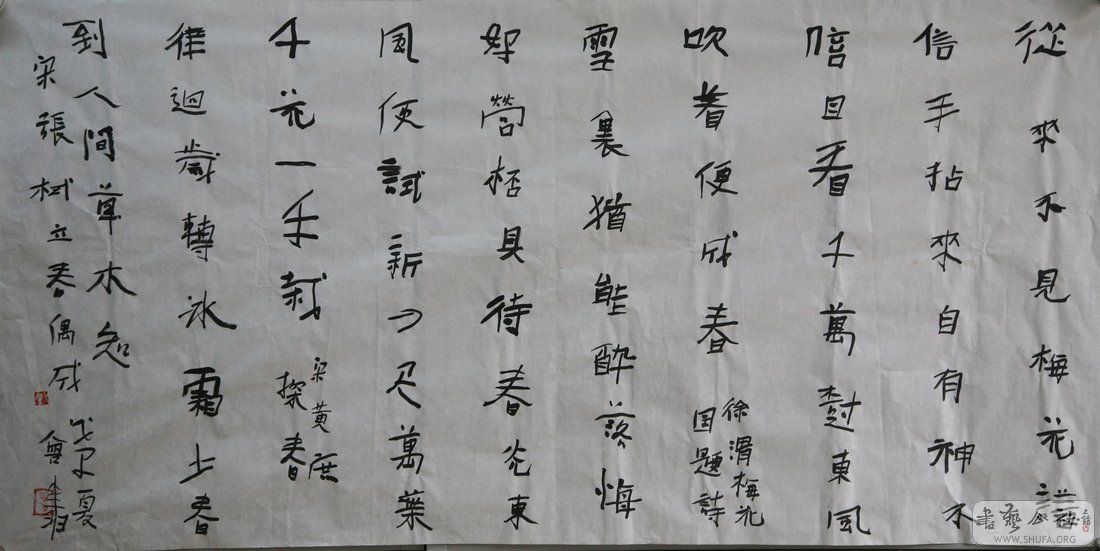 從來不見梅花譜
信手拈來自有神不
信且看千萬樹東風
吹着便成春
徐渭梅花
图題詩
雪裏猶能醉落梅
好營杯具待春來東
風便試新刀尺萬葉
千花一手裁
宋黃庶
探春
律迴歲轉冰霜少春
到人間草木知
宋張栻立春偶成
夏
書藝公社
WWW.SHUFA.ORG